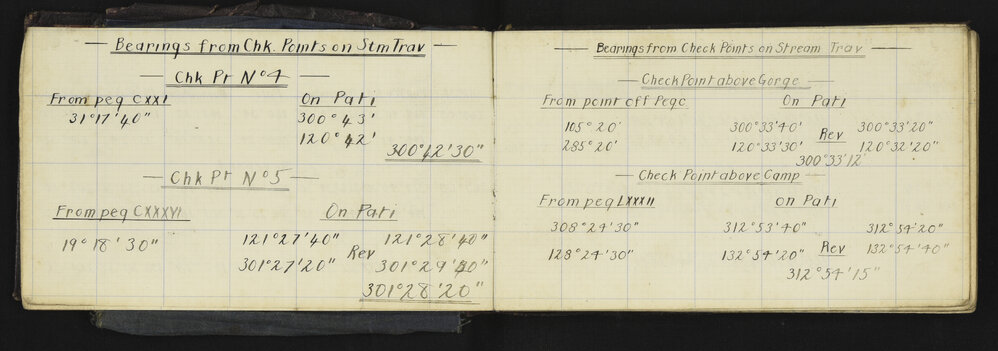 Bearings from Chk. Points on Stm Trav
Chk Pt Nº 4
From peg CXXI On Pati
31°17'40" 300°43'
120°42'
300°42'30"
Chk Pt Nº 5
From peg CXXXVI On Pati
19°18'30" 121°27'40" Rev 121°28'40"
301°27'20" 301°29'40"
301°28'20"
Bearings from Check Points on Stream Trav
Check Point above Gorge
From point off Peg c On Pati
105°20' 300°33'40" Rev 300°33'20"
285°20' 120°33'30" 120°32'20"
300°33'12"
Check Point above Camp
From peg LXXXII On Pati
308°24'30" 312°53'40" Rev 312°54'20"
128°24'30" 132°54'20" 132°54'40"
312°54'15"